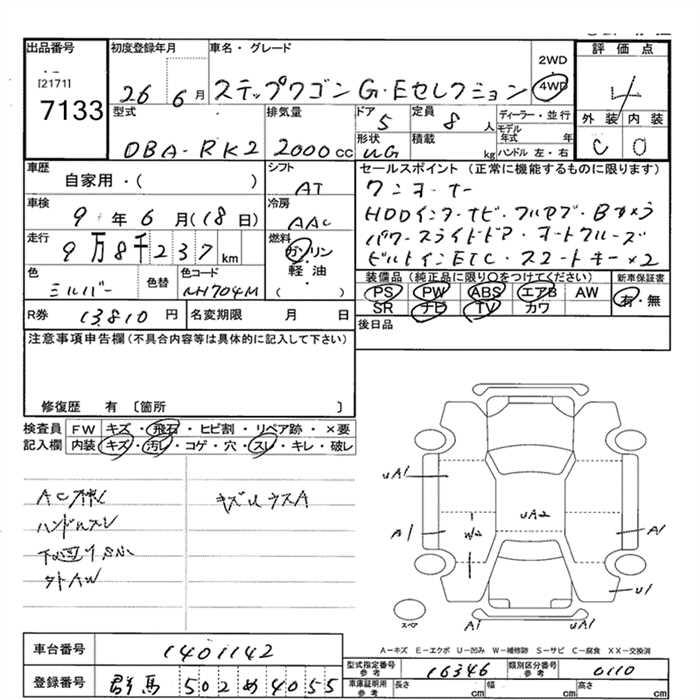 出品番号 初度登録年月 車名・グレード 2WD 評価点
[2171] 7133 26 6月 ステップワゴン G・Eセレクション 4WD 4
型式 排気量 ドア 定員 ディーラー・並行 外装 内装
DBA-RK2 2000cc 5 8人 モデル年式 年 C D
形状 積載 ハンドル 左・右
UG kg
車歴 シフト セールスポイント(正常に機能するものに限ります)
自家用・( ) AT ワンオーナー
車検 冷房 HDDインターナビ・フルセグ・Bカメラ
9年6月(18日) AAC パワースライドドア・オートクルーズ
走行 燃料 ビルトインETC・スマートキー×2
9万8千237km ガソリン
軽油
( )
色 色替 色コード 装備品(純正品に限り○をつけてください) 新車保証書
シルバー NH704M PS PW ABS エアB AW 有・無
SR ナビ TV カワ
R券 13810円 名変期限 月 日 後日品
注意事項申告欄(不具合内容等は具体的に記入して下さい)
修復歴 有 〔箇所 〕
検査員 FW キズ・飛石・ヒビ割・リペア跡・×要
記入欄 内装 キズ・汚レ・コゲ・穴・スレ・キレ・破レ
キズUウスA
ハンドルスレ
外AW
uA1
A1 W2 uA2 A1
u1
スペア A1 uA1
A-キズ E-エクボ U-凹み W-補修跡 S-サビ C-腐食 XX-交換済
車台番号 1401142 型式指定番号 参考 16346 類別区分番号 参考 0110
登録番号 群馬 502 め 4055 車庫証明用 参考 長さ cm 幅 cm 高さ cm